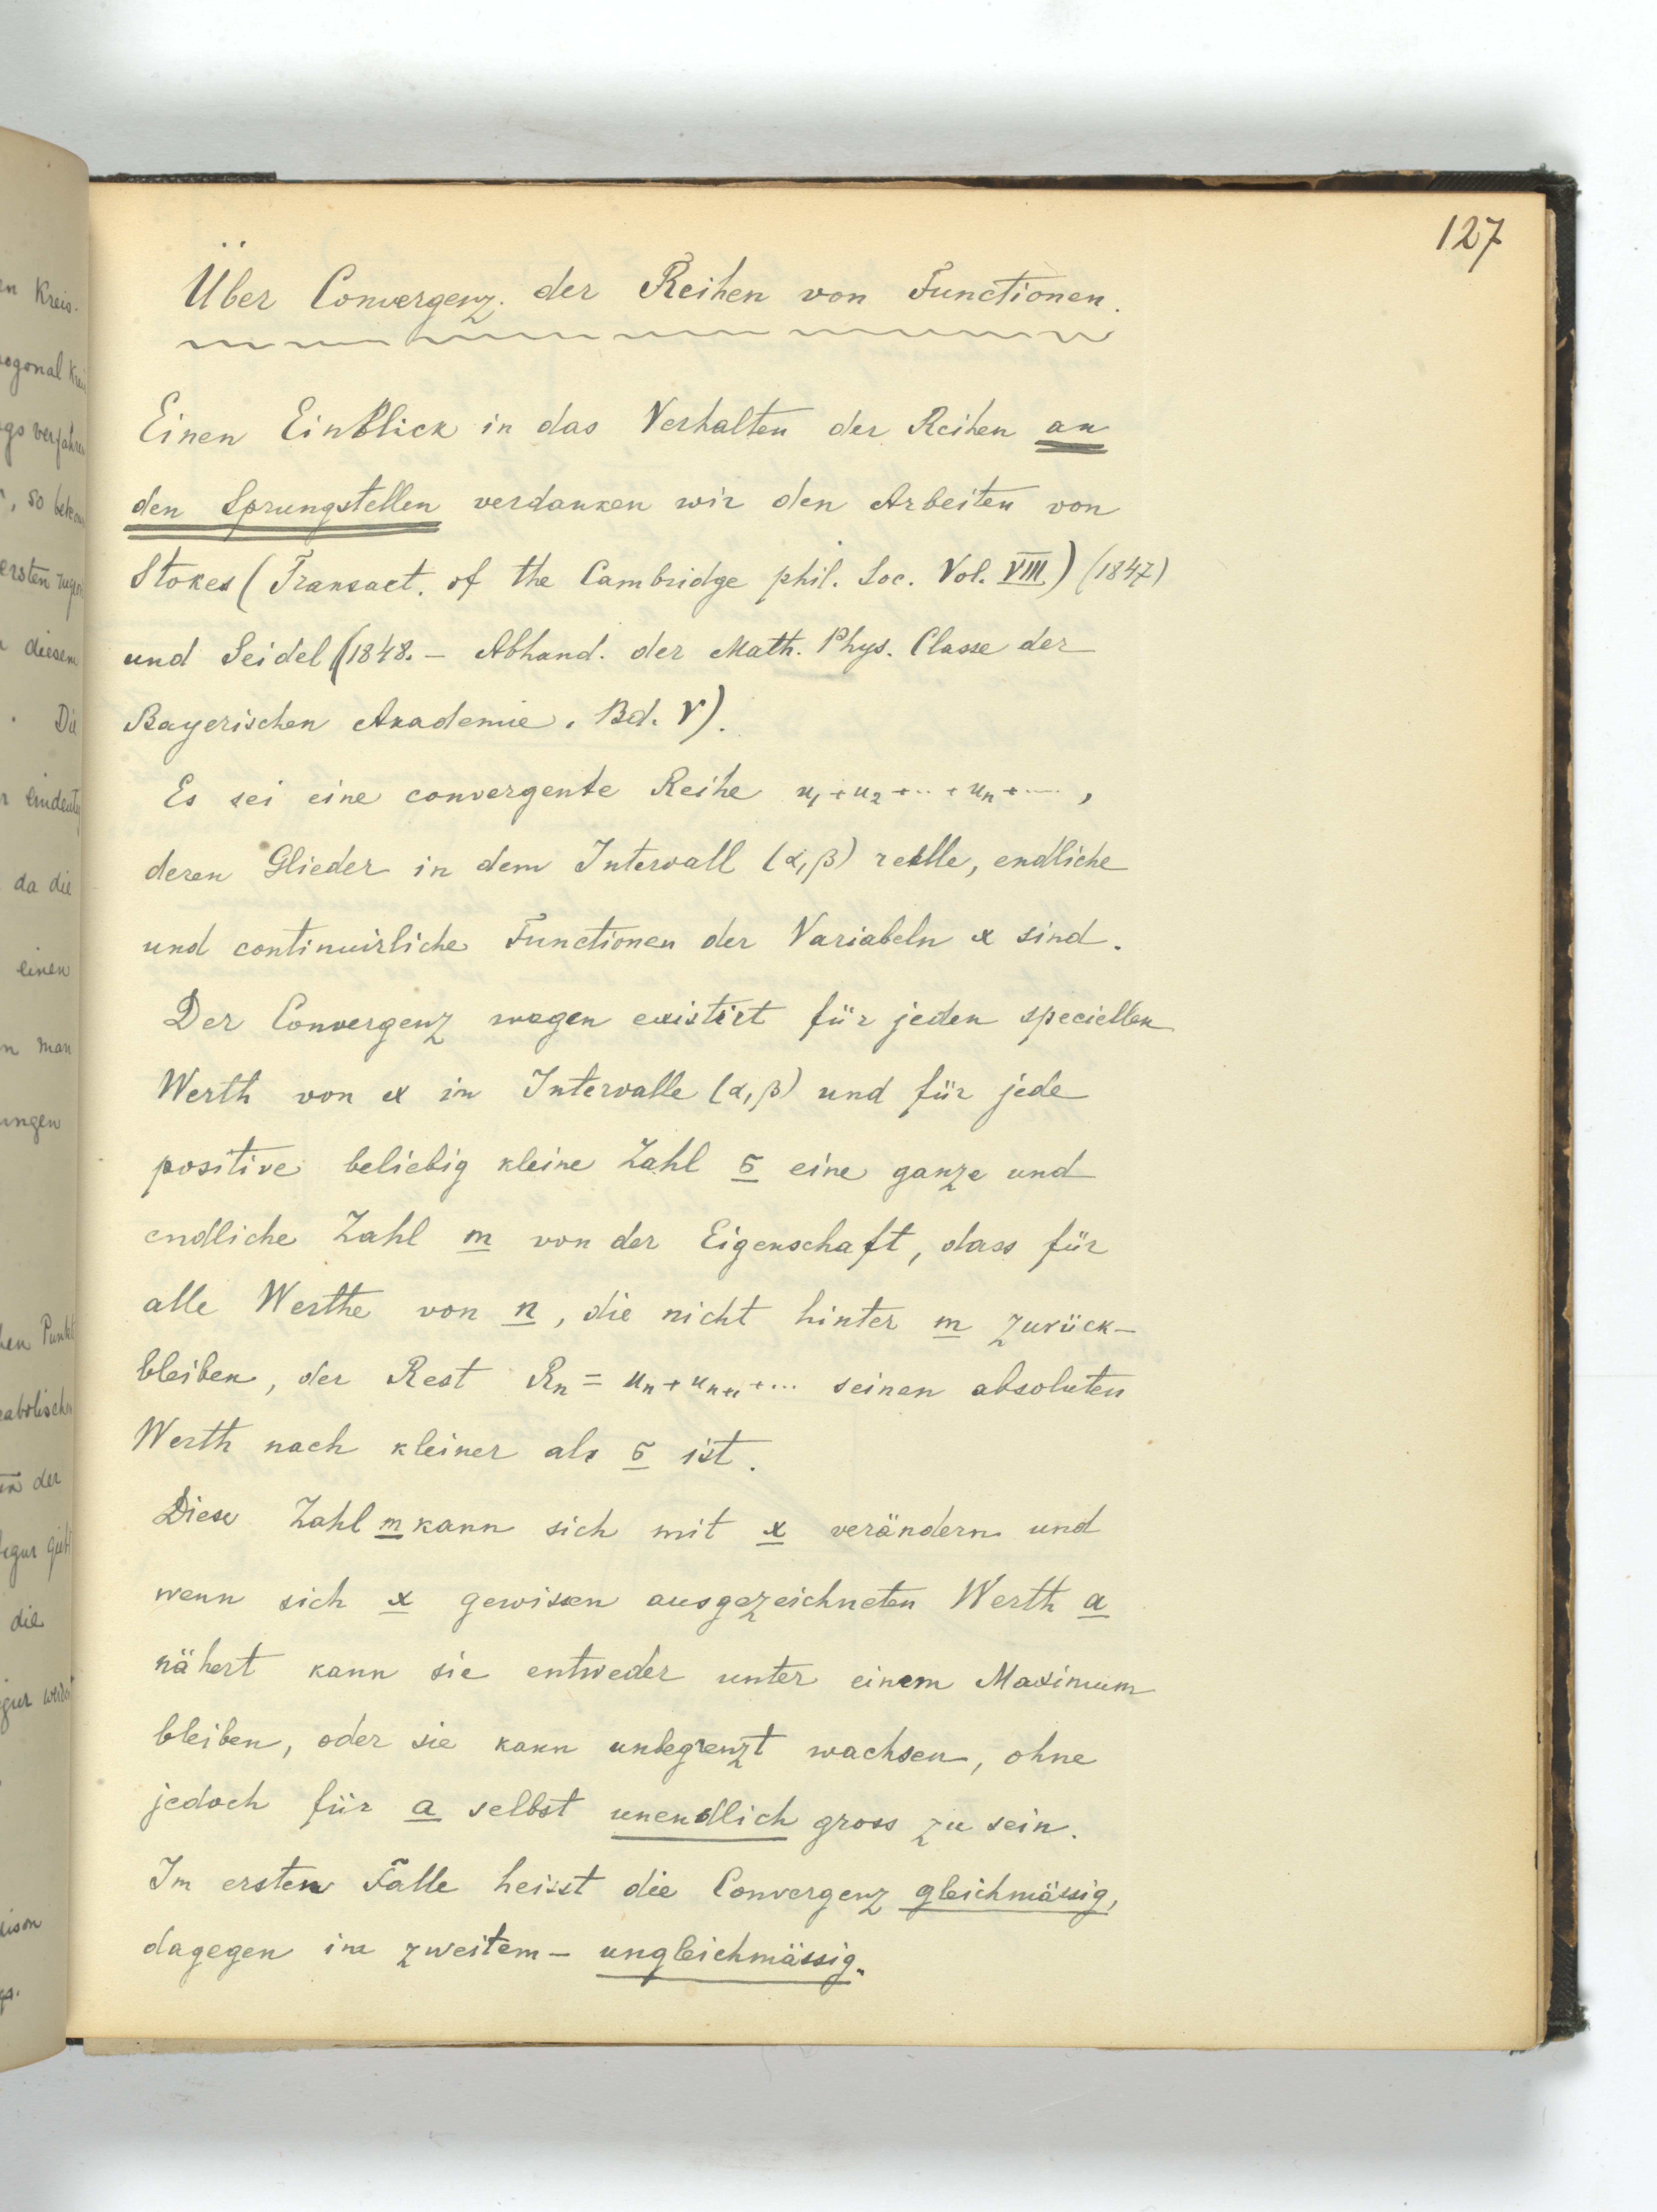 127
Über Convergenz der Reihen von Functionen.
Einen Einblick in das Verhalten der Reihen an
den Sprungstellen verdanken wir den Arbeiten von
Stokes (Transact. of the Cambridge phil. Soc. Vol. VIII) (1847)
und Seidel (1848. – Abhand. der Math. Phys. Classe der
Bayerischen Akademie. Bd. V).
Es sei eine convergente Reihe u₁+u₂+...+uₙ+....,
deren Glieder in dem Intervall (α,β) reelle, endliche
und continuirliche Functionen der Variabeln x sind.
Der Convergenz wegen existirt für jeden speciellen
Werth von x im Intervalle (α,β) und für jede
positive beliebig kleine Zahl σ eine ganze und
endliche Zahl m von der Eigenschaft, dass für
alle Werthe von n, die nicht hinter m zurück-
bleiben, der Rest Rₙ = uₙ+uₙ₊₁+... seinen absoluten
Werth nach kleiner als σ ist.
Diese Zahl m kann sich mit x verändern und
wenn sich x gewissen ausgezeichneten Werth a
nähert kann sie entweder unter einem Maximum
bleiben, oder sie kann unbegrenzt wachsen, ohne
jedoch für a selbst unendlich gross zu sein.
Im ersten Falle heisst die Convergenz gleichmässig,
dagegen im zweitem – ungleichmässig.
en Kreis.
ogonal
so
ersten
diesem
. Die
da die
einen
n man
ungen
hen Punkt
der
die